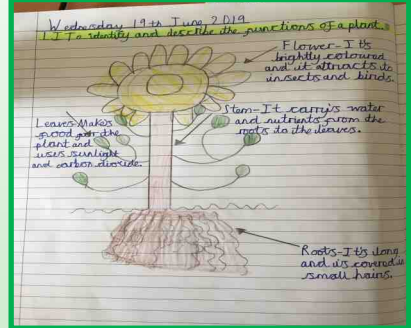 Wednesday 19th June 2019
L.I To identify and describe the functions of a plant.
Flower-It's
brightly coloured
and it attracts to
insects and birds.
Stem-It carrys water
and nutrients from the
roots to the leaves.
Leaves-Makes
food for the
plant and
uses sunlight
and carbon dioxide.
Roots-It's long
and is covered in
small hairs.